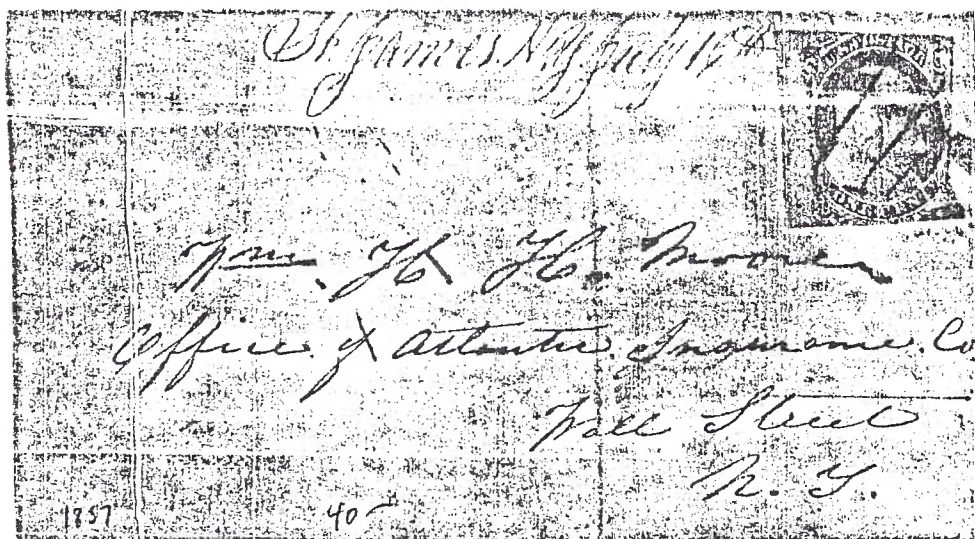 St. James N.Y. July 16th
Wm. H. H. Moore
Office of Atlantic Insurance Co
Wall Street
N. Y.
1857 40-